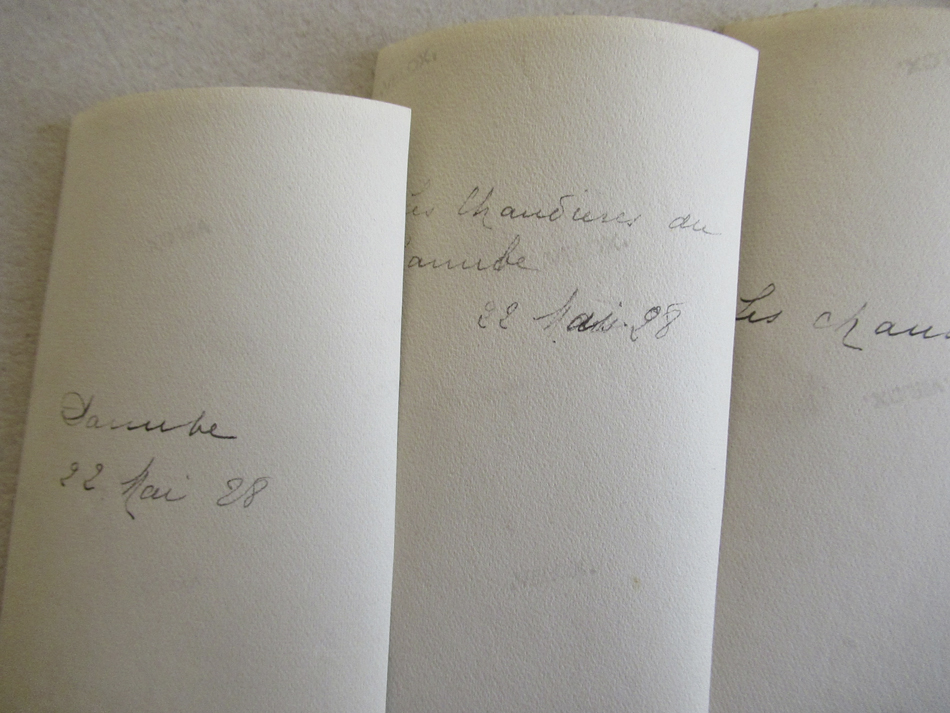 Danube
22 Mai 28
Les Chaudières du
Danube
22 Mai 28
Les chau